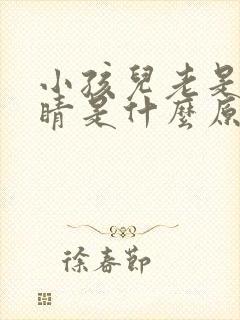 小孩兒老是
睛是什麼原
徐春節